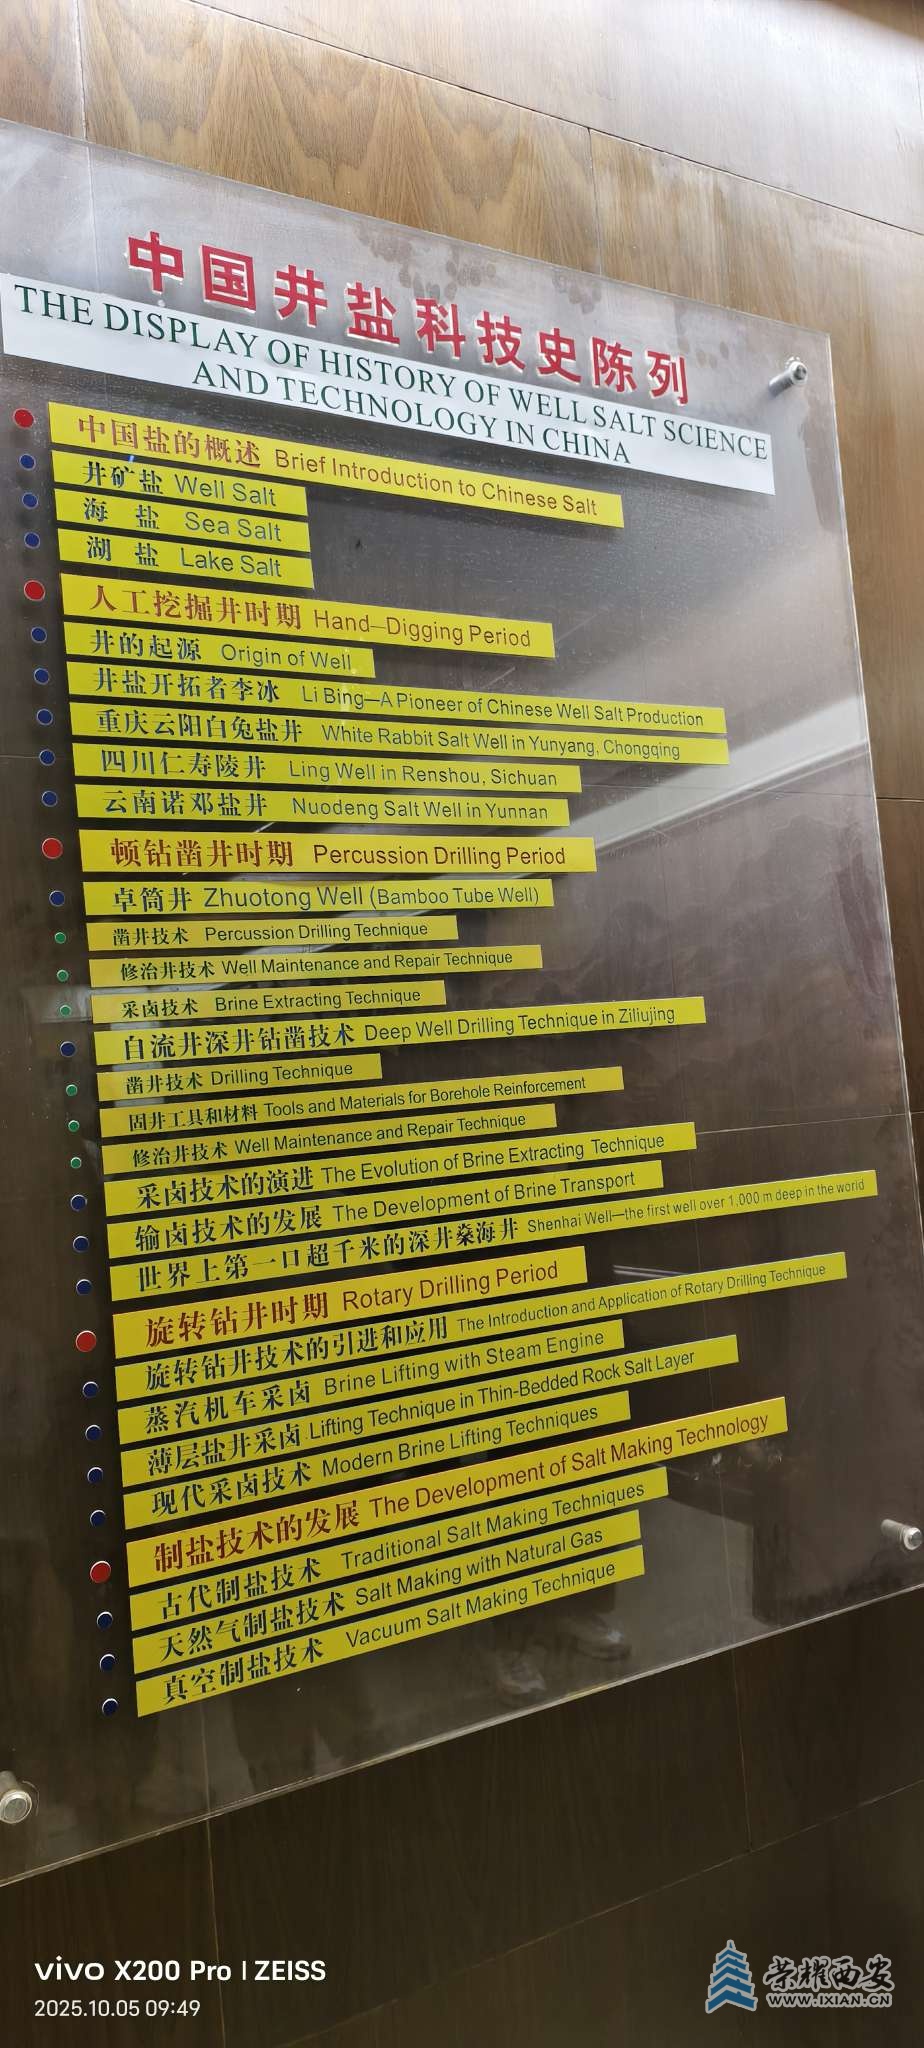 中国井盐科技史陈列
THE DISPLAY OF HISTORY OF WELL SALT SCIENCE
AND TECHNOLOGY IN CHINA
中国盐的概述 Brief Introduction to Chinese Salt
井矿盐 Well Salt
海 盐 Sea Salt
湖 盐 Lake Salt
人工挖掘井时期 Hand—Digging Period
井的起源 Origin of Well
井盐开拓者李冰 Li Bing—A Pioneer of Chinese Well Salt Production
重庆云阳白兔盐井 White Rabbit Salt Well in Yunyang, Chongqing
四川仁寿陵井 Ling Well in Renshou, Sichuan
云南诺邓盐井 Nuodeng Salt Well in Yunnan
顿钻凿井时期 Percussion Drilling Period
卓筒井 Zhuotong Well (Bamboo Tube Well)
凿井技术 Percussion Drilling Technique
修治井技术 Well Maintenance and Repair Technique
采卤技术 Brine Extracting Technique
自流井深井钻凿技术 Deep Well Drilling Technique in Ziliujing
凿井技术 Drilling Technique
固井工具和材料 Tools and Materials for Borehole Reinforcement
修治井技术 Well Maintenance and Repair Technique
采卤技术的演进 The Evolution of Brine Extracting Technique
输卤技术的发展 The Development of Brine Transport
世界上第一口超千米的深井燊海井 Shenhai Well—the first well over 1,000 m deep in the world
旋转钻井时期 Rotary Drilling Period
旋转钻井技术的引进和应用 The Introduction and Application of Rotary Drilling Technique
蒸汽机车采卤 Brine Lifting with Steam Engine
薄层盐井采卤 Lifting Technique in Thin-Bedded Rock Salt Layer
现代采卤技术 Modern Brine Lifting Techniques
制盐技术的发展 The Development of Salt Making Technology
古代制盐技术 Traditional Salt Making Techniques
天然气制盐技术 Salt Making with Natural Gas
真空制盐技术 Vacuum Salt Making Technique
vivo X200 Pro | ZEISS
2025.10.05 09:49
荣耀西安
WWW.IXIAN.CN